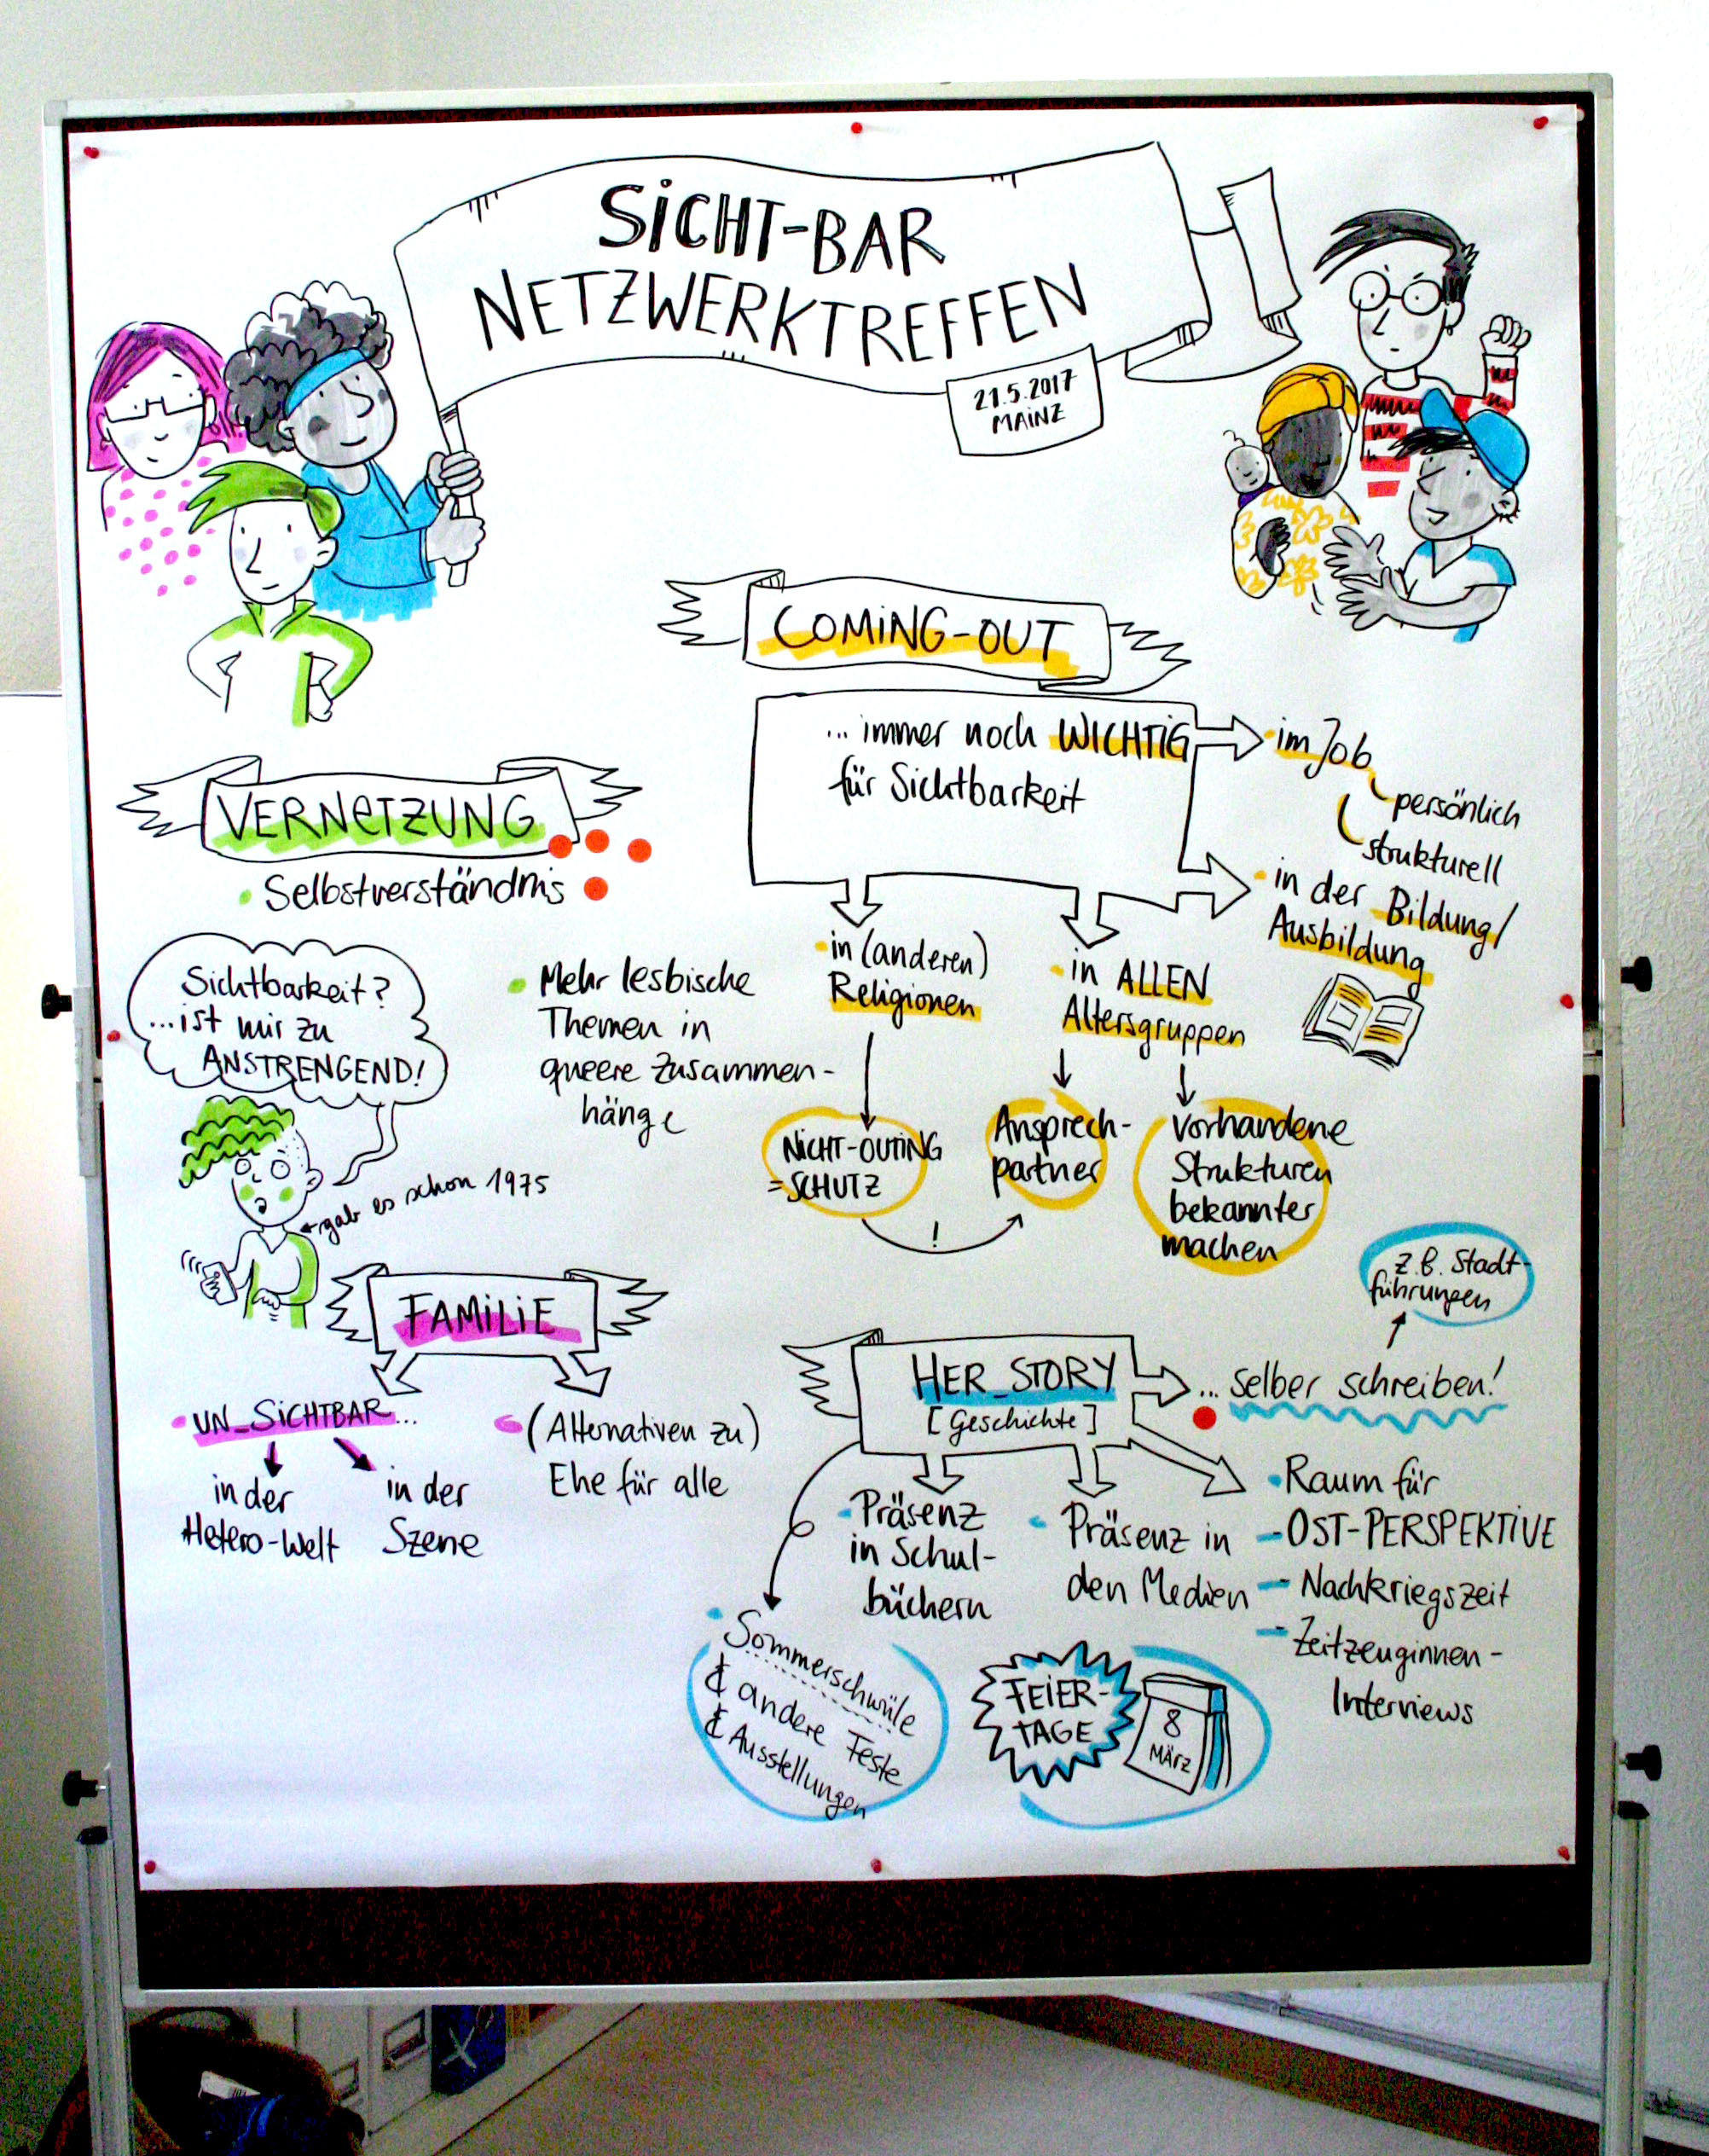 SICHT-BAR
NETZWERKTREFFEN
21.5.2017
MAINZ
COMING-OUT
... immer noch WICHTIG
für Sichtbarkeit
im Job
persönlich
strukturell
in der Bildung/
Ausbildung
in (anderen)
Religionen
in ALLEN
Altersgruppen
NICHT-OUTING
=SCHUTZ
!
Ansprech-
partner
vorhandene
Strukturen
bekannter
machen
VERNETZUNG
Selbstverständnis
Sichtbarkeit?
...ist mir zu
ANSTRENGEND!
gab es schon 1975
Mehr lesbische
Themen in
queere Zusammen-
hänge
FAMILIE
UN_SICHTBAR...
in der
Hetero-Welt
in der
Szene
(Alternativen zu)
Ehe für alle
HER_STORY
[Geschichte]
... selber schreiben!
z.B. Stadt-
führungen
Präsenz
in Schul-
büchern
Präsenz in
den Medien
Raum für
-OST-PERSPEKTIVE
- Nachkriegszeit
- Zeitzeuginnen-
Interviews
Sommerschwüle
& andere Feste
& Ausstellungen
FEIER-
TAGE
8
MÄRZ